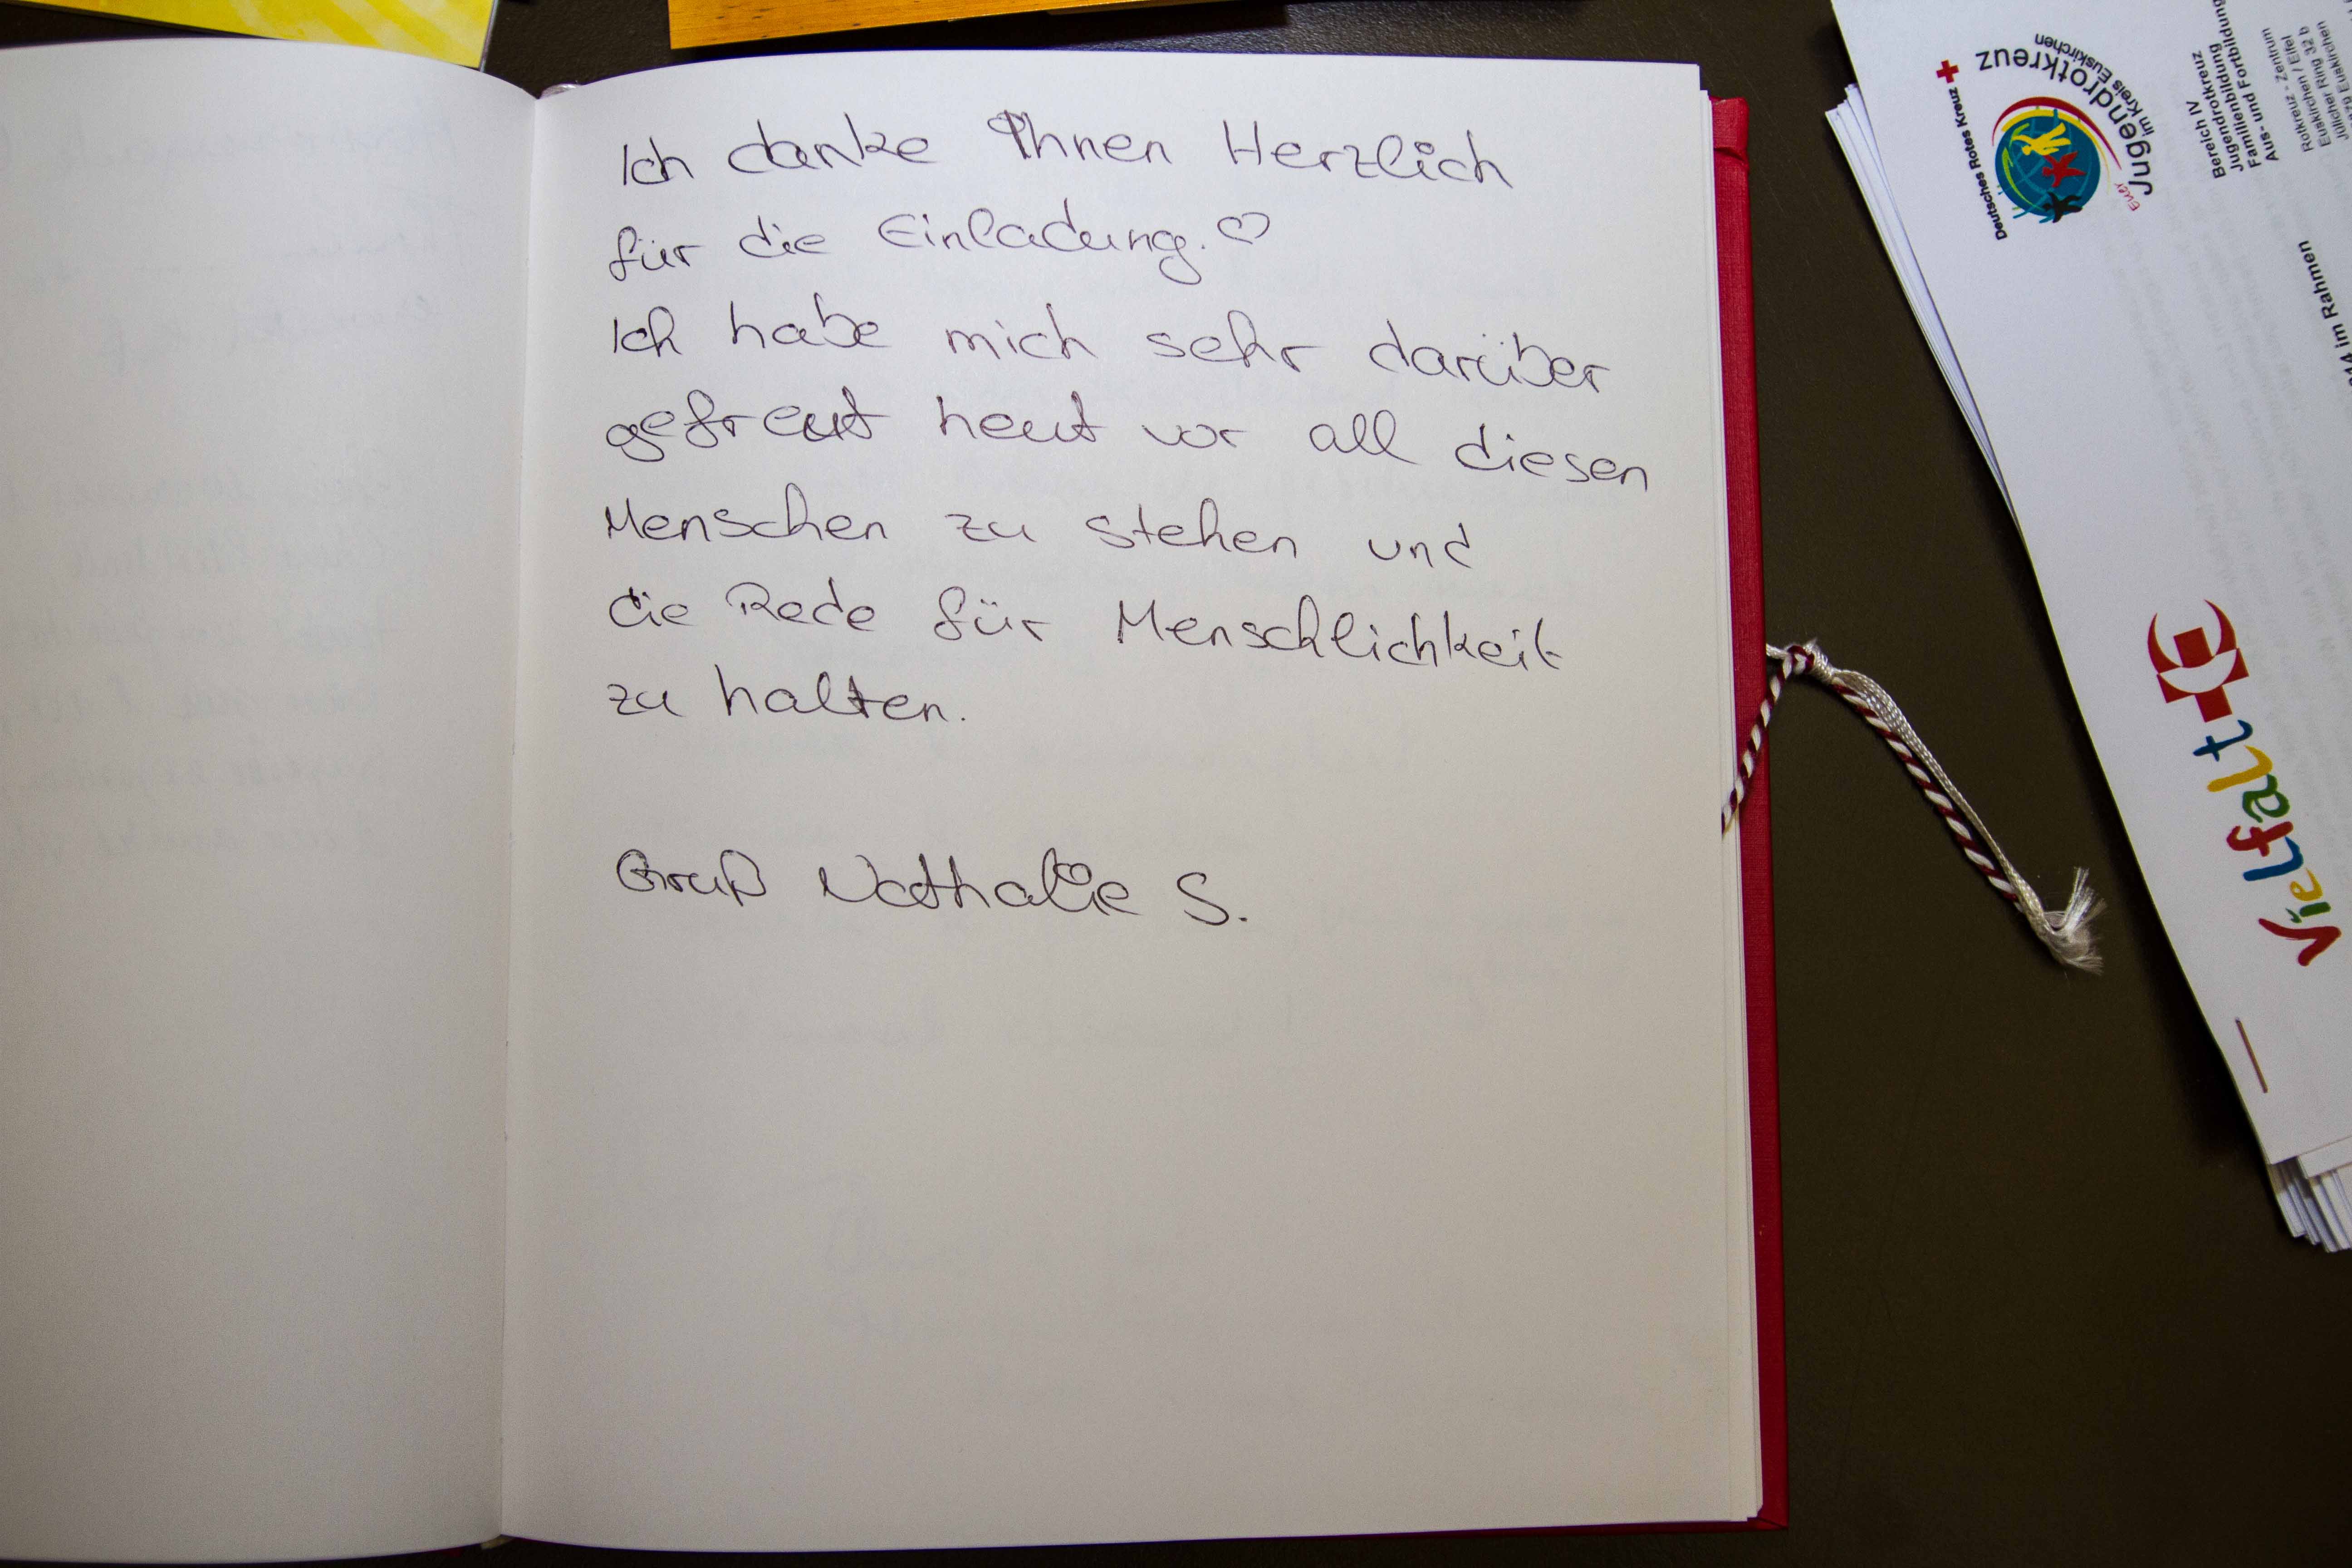 Ich danke Ihnen Herzlich
für die Einladung. ♡
Ich habe mich sehr darüber
gefreut heut vor all diesen
Menschen zu stehen und
die Rede für Menschlichkeit
zu halten.
Gruß Nathalie S.
Deutsches Rotes Kreuz
Jugendrotkreuz
im Kreis Euskirchen
Bereich IV
Jugendrotkreuz
Jugendbildung
Familienbildung
Aus- und Fortbildung
Rotkreuz - Zentrum
Euskirchen / Eifel
Jülicher Ring 32 b
Euskirchen
im Rahmen
Vielfalt